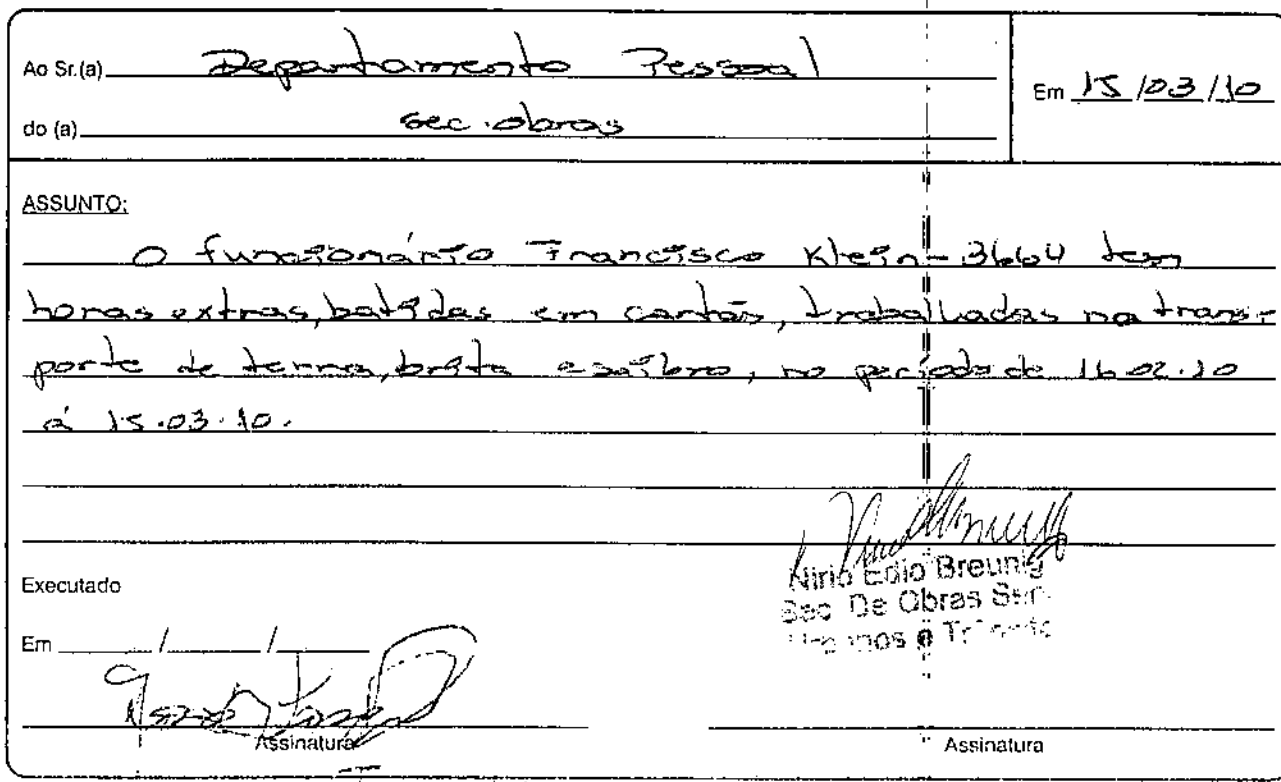 Ao Sr.(a) Departamento Pessoal
do (a) Sec. obras
Em 15/03/10
ASSUNTO:
O funcionário Francisco Klein - 3664 tem
horas extras, batidas em cartão, trabalhadas no trans-
porte de terra, brita e saibro, no período de 16.02.10
á 15.03.10.
Nirio Edio Breunig
Sec. De Obras Ser.
Urbanos e Trânsito
Executado
Em / /
Assinatura
Assinatura